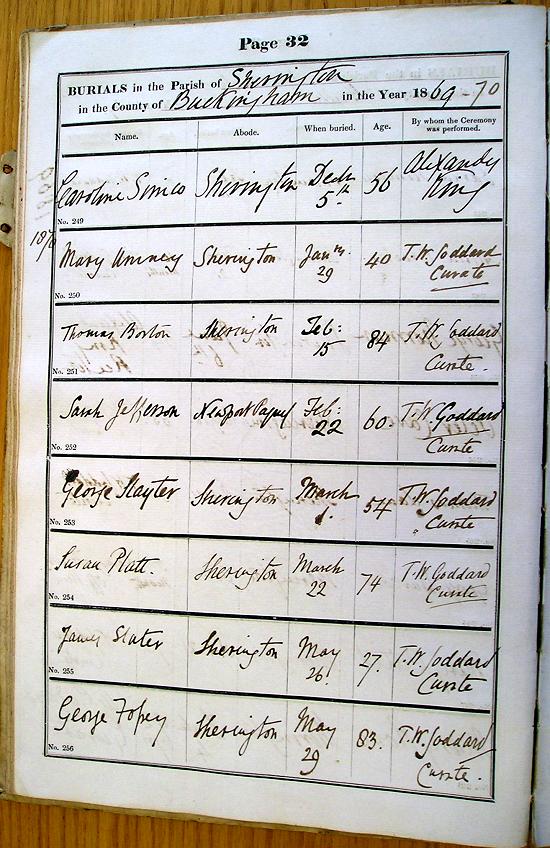 Page 32
BURIALS in the Parish of Sherington
in the County of Buckingham in the Year 1869-70
Name. Abode. When buried. Age. By whom the Ceremony was performed.
Caroline Simco Sherington Decr 5th 56 Alexander King
No. 249
1870
Mary Sherington Jany 29 40 T.W. Goddard Curate
No. 250
Thomas Borton Sherington Feb: 15 84 T.W. Goddard Curate.
No. 251
Sarah Jefferson Newport Pagnel Feb: 22 60 T.W. Goddard Curate
No. 252
George Slayter Sherington March 1. 54 T.W. Goddard Curate
No. 253
Susan Platt. Sherington March 22 74 T.W. Goddard Curate
No. 254
James Slater Sherington May 26. 27. T.W. Goddard Curate
No. 255
George Sherington May 29 83. T.W. Goddard Curate.
No. 256